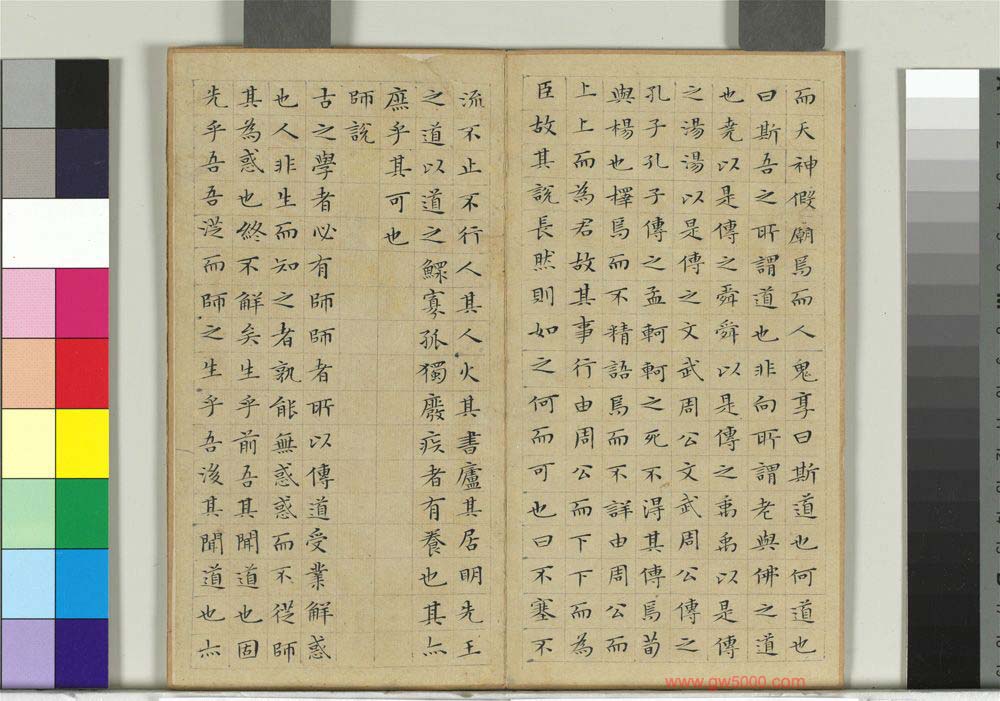 而天神假廟焉而人鬼享曰斯道也何道也
曰斯吾之所謂道也非向所謂老與佛之道
也堯以是傳之舜舜以是傳之禹禹以是傳
之湯湯以是傳之文武周公文武周公傳之
孔子孔子傳之孟軻軻之死不得其傳焉荀
與楊也擇焉而不精語焉而不詳由周公而
上上而為君故其事行由周公而下下而為
臣故其說長然則如之何而可也曰不塞不
流不止不行人其人火其書廬其居明先王
之道以道之鰥寡孤獨廢疾者有養也其亦
庶乎其可也
師說
古之學者必有師師者所以傳道受業解惑
也人非生而知之者孰能無惑惑而不從師
其為惑也終不解矣生乎前吾其聞道也固
先乎吾吾從而師之生乎吾後其聞道也亦
www.gw5000.com